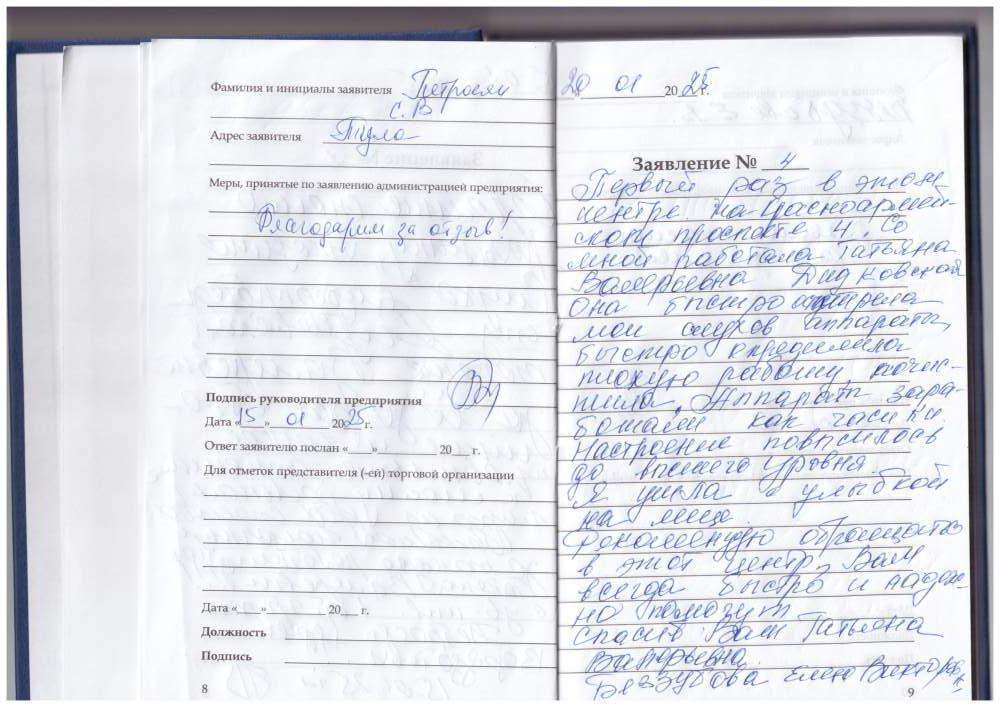 Фамилия и инициалы заявителя Петросян
С.В
Адрес заявителя Тула
Меры, принятые по заявлению администрацией предприятия:
Благодарим за отзыв!
Подпись руководителя предприятия
Дата «15» 01 2025г.
Ответ заявителю послан «___»__________ 20___ г.
Для отметок представителя (-ей) торговой организации
Дата «____»__________ 20___ г.
Должность
Подпись
8
20 01 2025г.
Заявление № 4
Первый раз в этом
центре на Красноармей-
ском проспекте 4. Со
мной работала Татьяна
Валерьевна Дидковская
Она быстро
мои слухов аппараты,
быстро определила
плохую работу, почис-
тила. Аппарат зара-
ботали как часики.
Настроение повысилось
до высшего уровня.
Я ушла с улыбкой
на лице.
Рекомендую обращаться
в этот центр. Вам
всегда быстро и надеж-
но помогут
спасибо Вам Татьяна
Валерьевна.
Беззубова Елена Викторовн
9